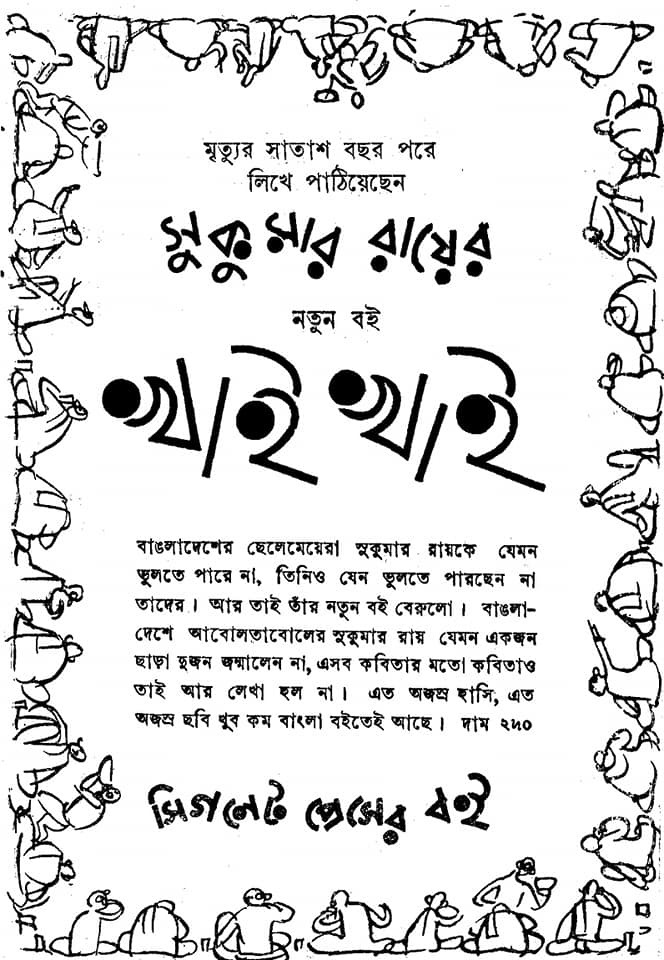 মৃত্যুর সাতাশ বছর পরে
লিখে পাঠিয়েছেন
সুকুমার রায়ের
নতুন বই
খাই খাই
বাঙলাদেশের ছেলেমেয়েরা সুকুমার রায়কে যেমন
ভুলতে পারে না, তিনিও যেন ভুলতে পারছেন না
তাদের। আর তাই তাঁর নতুন বই বেরুলো। বাঙলা-
দেশে আবোলতাবোলের সুকুমার রায় যেমন একজন
ছাড়া দুজন জন্মালেন না, এসব কবিতার মতো কবিতাও
তাই আর লেখা হল না। এত অজস্র হাসি, এত
অজস্র ছবি খুব কম বাংলা বইতেই আছে। দাম ২৸০
সিগনেট প্রেসের বই